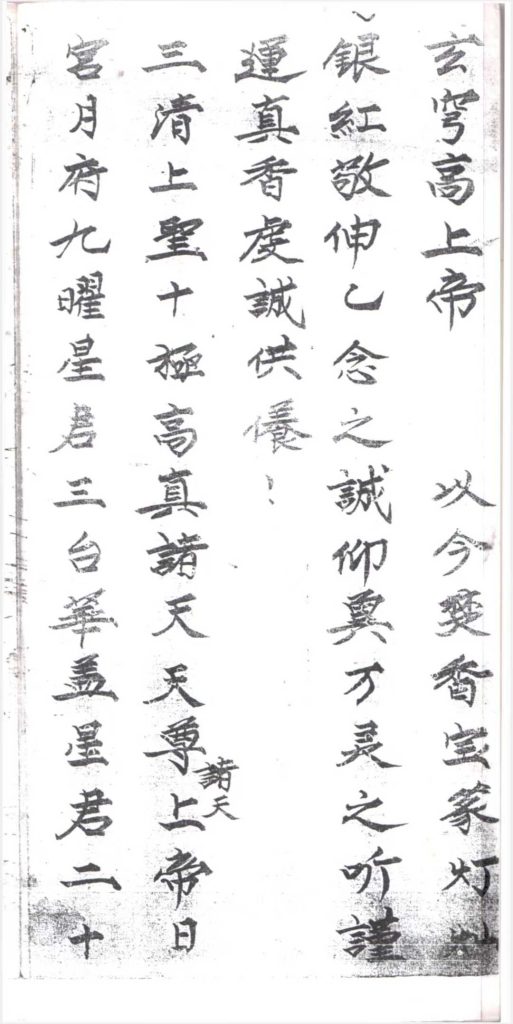 玄穹高上帝　以今焚香宝篆灯
銀紅敬伸乙念之誠仰奠万灵之听謹
運真香虔誠供養
三清上聖十極高真諸天天尊諸天上帝日
宮月府九曜星君三台華盖星君二十